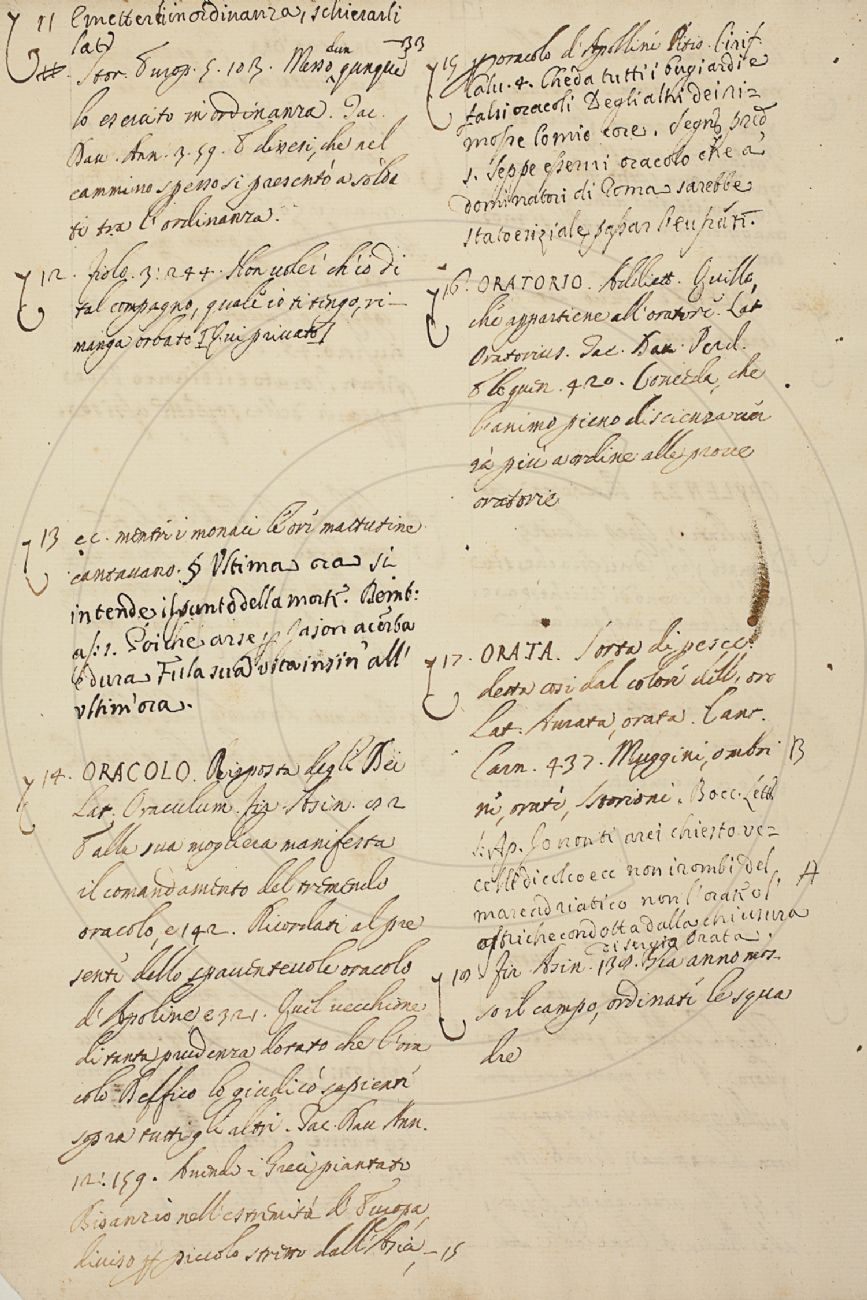 11 e metterti in ordinanza, schierarli
lat)
Stor. Europ. 5. 103. Messo dunque 33
lo esercito in ordinanza. Tac.
Dau. Ann. 3. 59. E diversi, che nel
cammino spesso si presentò a solda
ti tra l'ordinanza.
12. fiolo. 3: 244. Non volei ch'io di
tal compagno, quale io ti tingo, ri-
manga orbato [Qui privato]
13 ec. mentri i monaci le ori mattutine
cantavano. § Ultima ora si
intende il punto della morte. Bemb:
as: 1. Poiche arse p Jason acerba
e dura Fu la sua vita insin' all'
vltim'ora.
14. ORACOLO. Risposta degli Dei
Lat. Oraculum. fir Asin. 92
E alla sua mogliera manifesta
il comandamento del tremendo
oracolo, e 142. Ricordati al pre
senti dello spaventevole oracolo
d'Apoline e 321. Quel vecchione
di tanta prudenza dotato che l'ora
colo Deffico lo giudicò sapienti
sopra tutti gli altri. Tac. Dau Ann.
12: 159. Avendo i Greci piantato
Bisanzio nell'estremità d'Europa,
diviso p piccolo stretto dall'Asia, - 15
15 p oracolo d'Apolline Pitio. Cirif.
Calu. 4. Che da tutti i bugiardi e
falsi oracoli Degli altri dei ri=
mosse lo mio core. Segn.
s. Seppe esservi oracolo che a'
dominatori di Roma sarebbe
stato eriziale
16. ORATORIO. Addiett. Quillo,
che appartiene all'oratori. Lat
Oratorius. Tac. Dau. Perd.
Eloquen. 420. Conceda, che
l'animo pieno di scienza ver
rà più a ordine alle prove
oratorie
17. ORATA. Sorta di pesce.
detta così dal colori dell'oro
Lat. Aurata, orata. Cant.
Carn. 437. Muggini, ombri B
ni, orati, Storioni. Bocc. Lett
Ap. Io non ti arei chiesto ve=
celli di colco ecc non i rombi del A
mare adriatico non l'orate l'
ostriche condotta dalla chiusura
di sergio Orata.
18. fir Asin. 138. Era anno mos
so il campo, ordinati le squa
dre